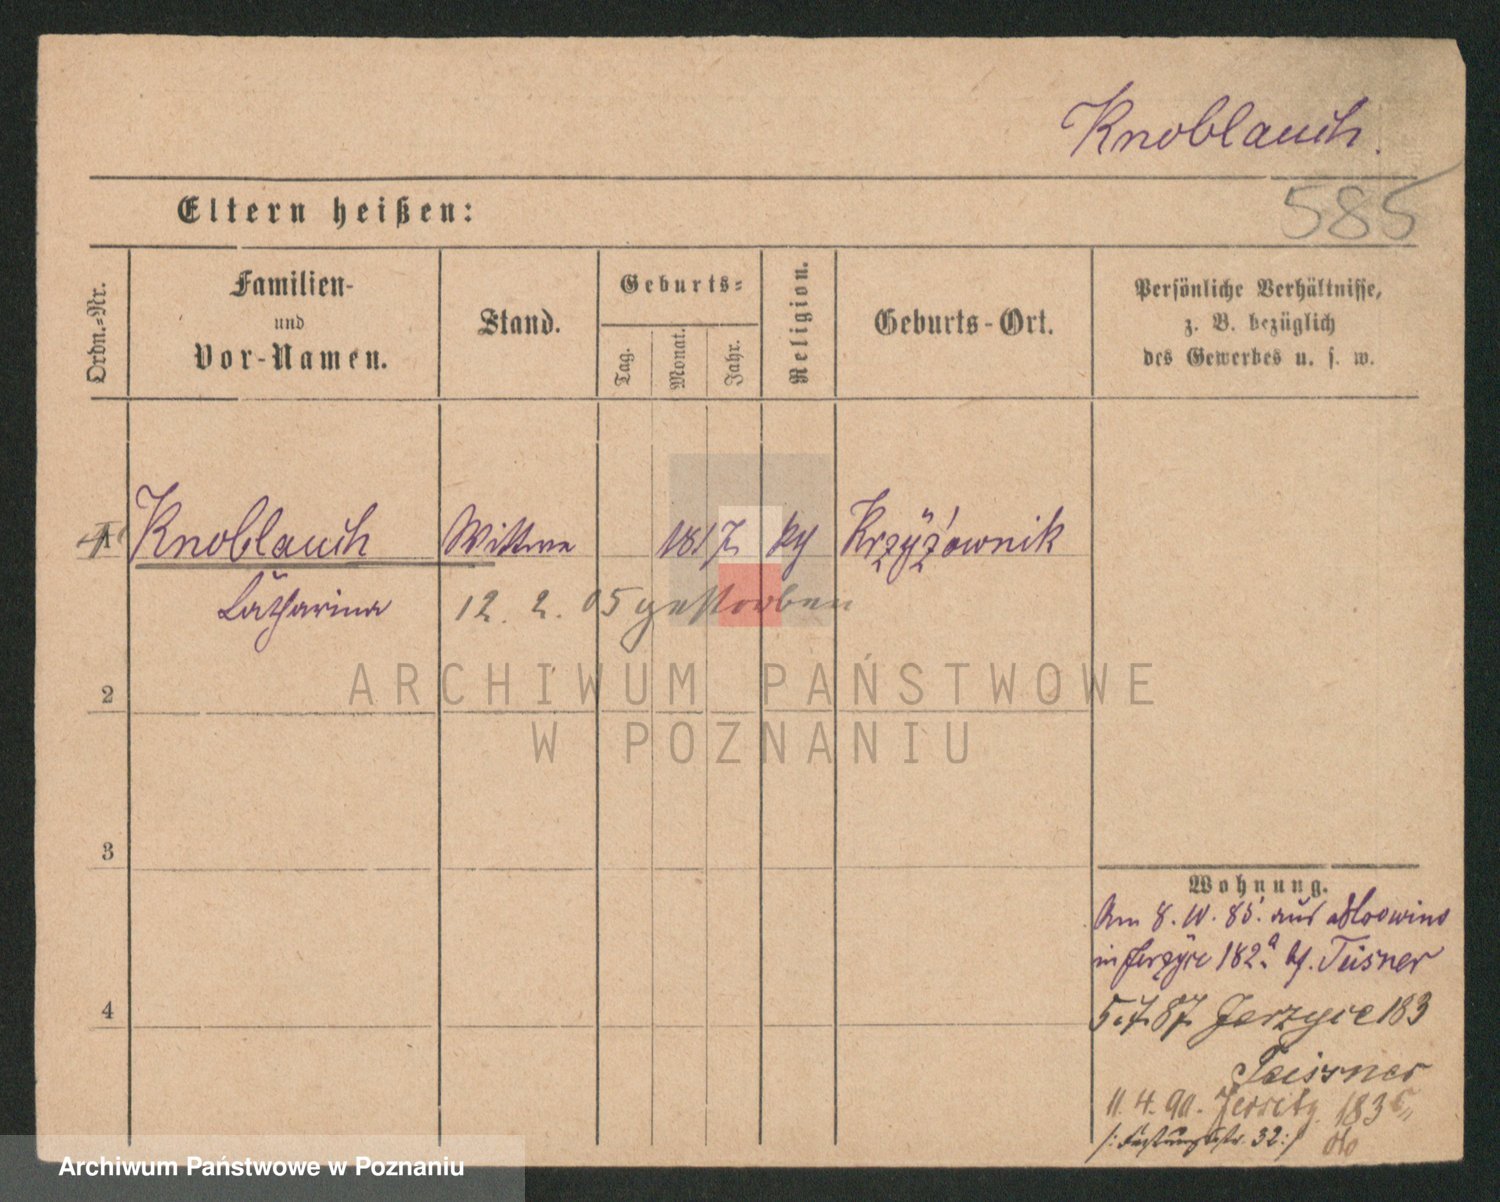 Knoblauch.
585
Eltern heißen:
Ordn.-Nr.
Familien-
und
Vor-Namen.
Stand.
Geburts-
Tag.
Monat.
Jahr.
Religion.
Geburts-Ort.
Persönliche Verhältnisse,
z. B. bezüglich
des Gewerbes u. s. w.
1 Knoblauch Wittwe 1817 Krzyżownik
Catharina 12. 2. 05 gestorben
ARCHIWUM PAŃSTWOWE
W POZNANIU
2
3
4
Wohnung.
Am 8. 85. aus
in Jerzyce 182a. Teisner
5.7.87 Jerzyce 183
Teisner
11. 4. 90. Jersitz 183
32:/
Archiwum Państwowe w Poznaniu